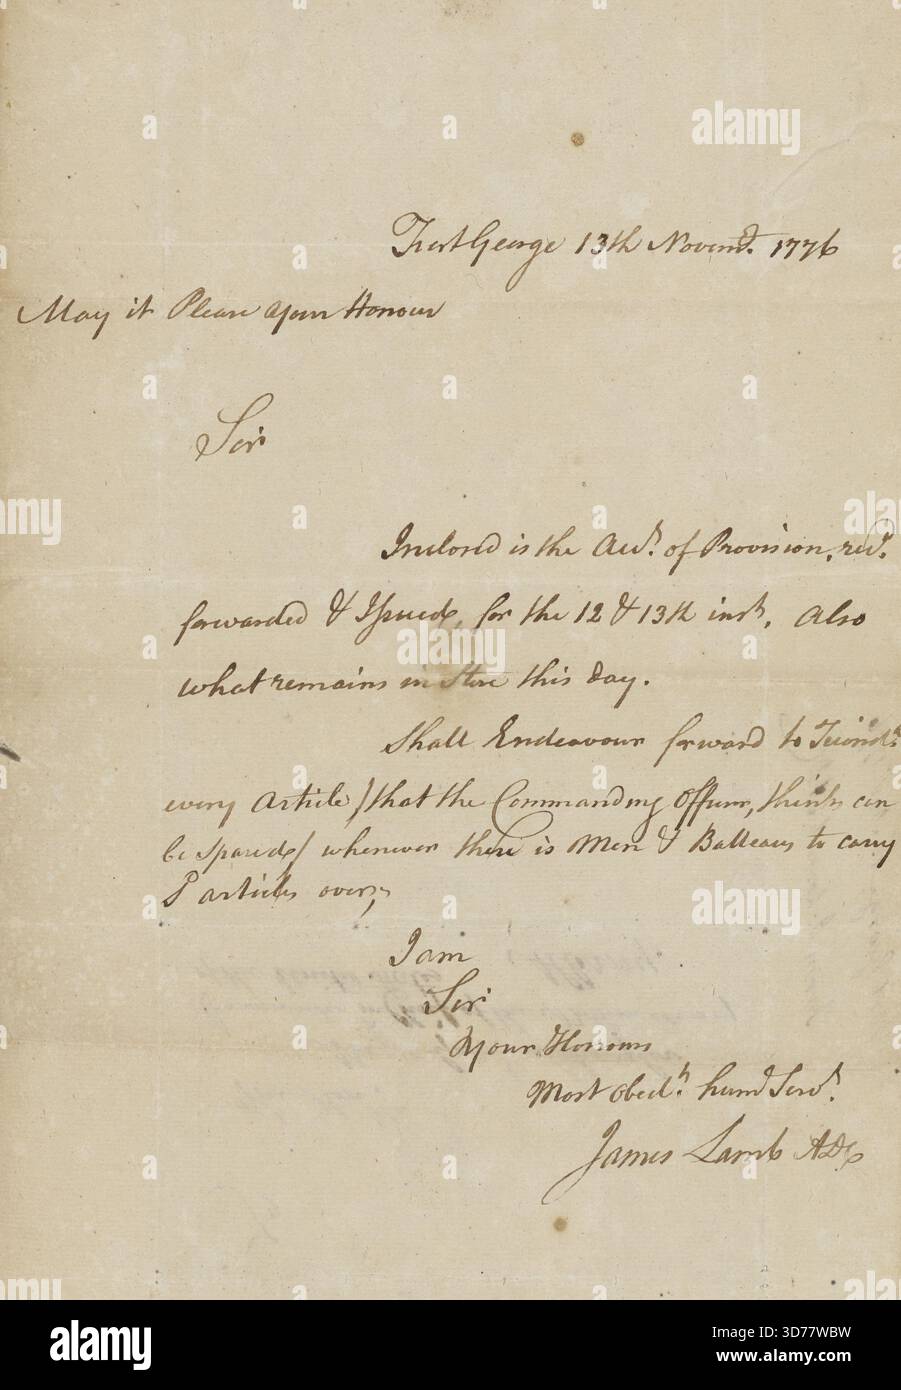 Fort George 13th Novembr. 1776
May it Please your Honour
Sir
Inclosed is the Acct. of Provision, recd.
forwarded & Issued, for the 12 & 13th inst. Also
what remains in Store this day.
Shall Endeavour forward to
every Article / that the Commanding Officer, thinks can
be spared / whenever there is Men & Batteaus to carry
articles over,
I am
Sir
Your Honours
Most Obedt. humb Servt.
James Lamb
alamy
Image ID: 3D77WBW
www.alamy.com